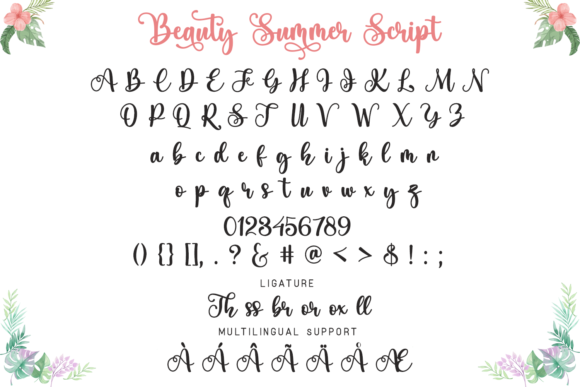 Beauty Summer Script
A B C D E F G H I J K L M N
O P Q R S T U V W X Y Z
a b c d e f g h i j k l m n
o p q r s t u v w x y z
0123456789
() {} [], . ? & # @ < > $ ! : ;
LIGATURE
Th ss br or ox ll
MULTILINGUAL SUPPORT
À Á Â Ã Ä Å Æ